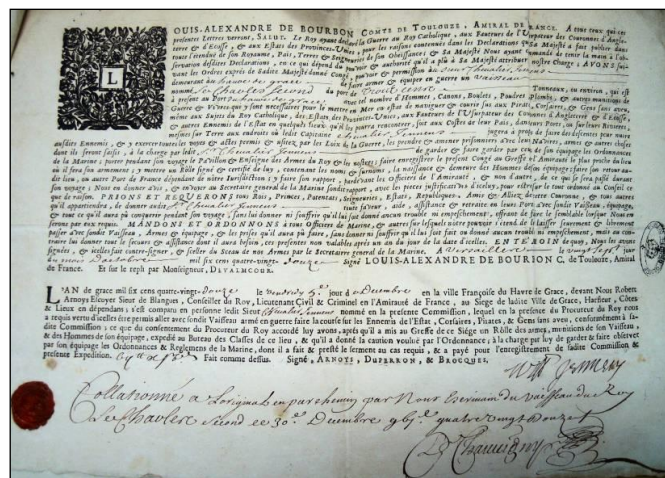 L
OUIS-ALEXANDRE DE BOURBON COMTE DE TOULOUZE, AMIRAL DE FRANCE. A tous ceux qui ces
presentes Lettres verront, SALUT. Le Roy ayant declaré la Guerre au Roy Catholique, aux Fauteurs de l'Usurpateur des Couronnes d'Angle-
terre & d'Ecosse, & aux Estats des Provinces-Unies, pour les raisons contenuës dans les Declarations que Sa Majesté a fait publier dans
toute l'étenduë de son Royaume, Païs, Terres & Seigneuries de son Obéissance; & Sa Majesté Nous ayant commandé de tenir la main à l'ob-
servation desdites Declarations, en ce qui dépend du pouvoir & authorité qu'il a plû à Sa Majesté attribuer nostre Charge; AVONS sui-
vant les Ordres exprés de Sadite Majesté donné Congé, pouvoir & permission
demeurant au havre de grace de faire armer & équiper en guerre un vaisseau
nommé Le Charles Second du port de Tonneaux, ou environ, qui est
à present au Port du havre de grace avec tel nombre d'Hommes, Canons, Boulets, Poudres, Plombs, & autres munitions de
Guerre & Vivres qui y sont necessaires pour le mettre en Mer en estat de naviguer & courir sus aux Pirates, Corsaires, & Gens sans aveu,
même aux Sujets du Roy Catholique, des Estats des Provinces-Unies, aux Fauteurs de l'Usurpateur des Couronnes d'Angleterre & d'Ecosse,
& autres Ennemis de l'Estat en quelques lieux qu'il les pourra rencontrer, soit aux Costes de leur Païs, dans leurs Ports, ou sur leurs Rivieres,
mesmes sur Terre aux endroits où ledit Capitaine jugera à propos de faire des descentes pour nuire
ausdits Ennemis, & y exercer toutes les voyes & actes permis & usitez par les Loix de la Guerre, les prendre & amener prisonniers avec leurs Navires, armes & autres choses
dont ils seront saisis, à la charge par ledit de garder & faire garder par ceux de son équipage les Ordonnances
de la Marine; porter pendant son voyage le Pavillon & Enseigne des Armes du Roy & les nostres; faire enregistrer le present Congé au Greffe de l'Amirauté le plus proche du lieu
où il fera son armement; y mettre un Rôlle signé & certifié de luy, contenant les noms & surnoms, la naissance & demeure des Hommes de son équipage; faire son retour au-
dit lieu, ou autre Port de France dépendant de nôtre Jurisdiction; y faire son rapport, pardevant les Officiers de l'Amirauté, & non d'autre, de ce qui se sera passé durant
son voyage; Nous en donner avis, & envoyer au Secretaire general de la Marine sondit rapport, avec les pieces justificatives d'iceluy, pour estre sur le tout ordonné au Conseil ce
que de raison. PRIONS ET REQUERONS tous Rois, Princes, Potentats, Seigneuries, Estats, Republiques, Amis & Alliez de cette Couronne, & tous autres
qu'il appartiendra, de donner audit toute faveur, aide, assistance & retraite en leurs Ports avec sondit Vaisseau, équipage,
& tout ce qu'il aura pû conquerir pendant son voyage, sans luy donner ni souffrir qu'il luy soit donné aucun trouble ni empeschement, offrant de faire le semblable lorsque Nous en
serons par eux requis. MANDONS ET ORDONNONS à tous Officiers de Marine, & autres sur lesquels nôtre pouvoir s'étend de le laisser seurement & librement
passer avec sondit Vaisseau, Armes & équipage, & les prises qu'il aura pû faire, sans donner ni souffrir qu'il luy soit fait ou donné aucun trouble ni empeschement, mais au con-
traire luy donner tout le secours & assistance dont il aura besoin, ces presentes non valables aprés un an du jour de la date d'icelles. EN TEMOIN de quoy, Nous les avons
signées, & icelles fait contre-signer, & sceller du Sceau de nos Armes par le Secretaire general de la Marine, Versailles le vingt Sept jour
du mois d'octobre mil six cens quatre-vingt-douze Signé LOUIS-ALEXANDRE DE BOURBON C. de Toulouze, Amiral
de France. Et sur le repli par Monseigneur, DEVALINCOUR.
L'AN de grace mil six cens quatre-vingt-Douze le Vendredy jour de Decembre en la ville Françoise du Havre de Grace, devant Nous Robert
Arnoys Escuyer Sieur de Blangues, Conseiller du Roy, Lieutenant Civil & Criminel en l'Amirauté de France, au Siege de ladite Ville de Grace, Harfleur, Côtes
& Lieux en dépendans; s'est comparu en personne ledit Sieur nommé en la presente Commission, lequel en la presence du Procureur du Roy nous
a requis vertu d'icelle être permis aller avec sondit Vaisseau armé en guerre faire la course sur les Ennemis de l'Estat, Corsaires, Pirates, & Gens sans aveu, conformément à la-
dite Commission; ce que du consentement du Procureur du Roy accordé luy avons, aprés qu'il a mis au Greffe de ce Siege un Rôlle des armes, munitions de son Vaisseau,
& des Hommes de son équipage, expedié au Bureau des Classes de ce lieu, & qu'il a donné la caution voulüe par l'Ordonnance; à la charge par luy de garder & faire observer
par son équipage les Ordonnances & Reglemens de la Marine, dont il a fait & presté le serment au cas requis, & a payé pour l'enregistrement de ladite Commission &
presente Expedition. Fait comme dessus. Signé, ARNOYS, DUPERRON, & BROCQUES.
Collationné a Loriginal en parchemin par Nous Escrivain du vaisseau du Roy
Le Charles Second ce 30e Decembre quatre vingt Douze